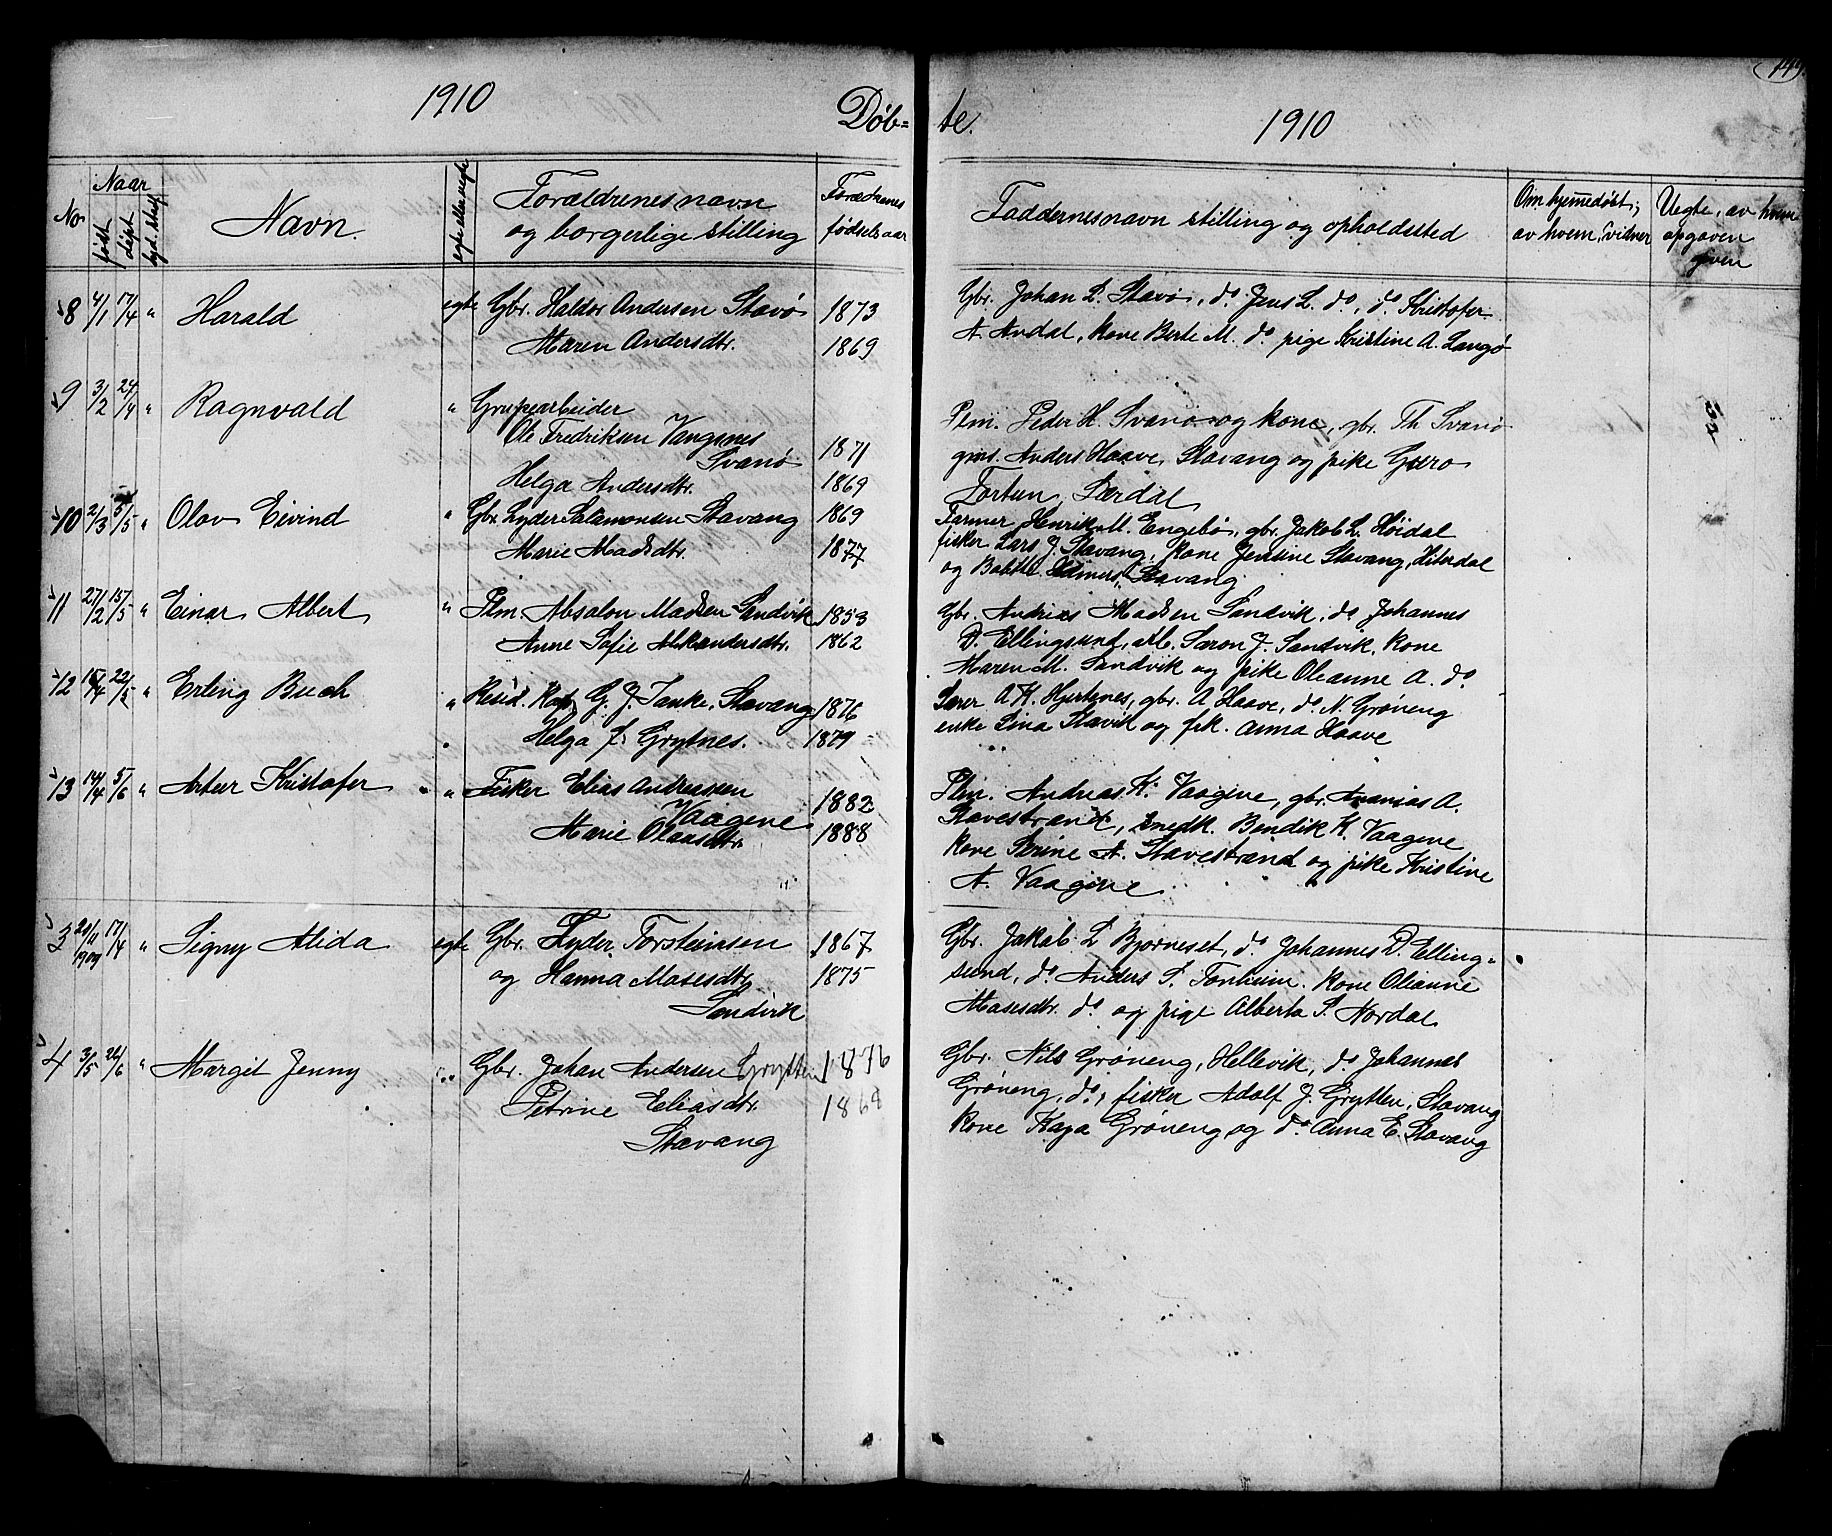 1910 Døb= te. 1910
149.
No Naar født døpt Navn. egte eller uegte Forældrenes navn og borgerlige stilling Forældrenes fødselsaar Faddernes navn stilling og opholdssted Om hjemmedøbt; av hvem, vidner Uegte, av hvem opgaven given
8 4/1 17/4 " Harald egte Gbr. Haldor Andersen Stavø 1873 Gbr. Johan L. Stavø, do Jens L. do, do Kristofer
Maren Andersdtr. 1869 A. Andal, kone Berte M. do pige Kristine A. Langø
9 3/2 24/4 " Ragnvald " Grupearbeider
Ole Fredriksen Vangsnes 1871 Plm. Peder H. Svanø og kone, gbr. Th. Svanø
Svanø gms. Anders Haave, Stavang og pike Guro
Helga Andersdtr. 1869 Fortun, Lærdal
10 2/3 5/5 " Olav Eivind " Gbr. Lyder Salamonsen Stavang 1869 Farmer Henrik M. Engebø, gbr. Jakob L. Høidal
Marie Madsdtr. 1877 fisker Lars J. Stavang, kone Jensine Stavang, Hiterdal
og Stavang
11 27/2 15/5 " Einar Albert " Plm. Absalon Madsen Sandvik 1853 Gbr. Andrias Madsen Sandvik, do Johannes
Anne Sofie Aleksandersdtr. 1862 D. Ellingsund, arb. Saron J. Sandvik, kone
Maren M. Sandvik og pike Oleanne A. do
12 15/4 22/5 " Erling Buch " Resid. Kap. G. J. Tanke, Stavang 1876 Lærer A K. Hjertenes, gbr. A Haave, do N. Grøneng
" Helga J. Grytnes. 1879 enke Lina Stavik og frk. Anna Haave
13 14/4 5/6 " Artur Kristofer " Fisker Elias Andreassen 1882 Plm. Andreas K. Vaagene, gbr. Ananias A.
Vaagene Stavestrand, snedk. Bendik K. Vaagene
Marie Olausdtr. 1888 kone Serine A. Stavestrand og pike Kristine
A. Vaagene
3 20/11 1909 17/4 " Signy Alida egte Gbr. Lyder Torsteinsen 1867 Gbr. Jakob L Bjørneset, do Johannes D. Elling=
og Hanna Mosesdtr 1875 sund, do Anders S. Tonheim. kone Olianne
Sandvik Mosesdtr. do og pige Alberta S. Nordal
4 3/5 26/6 " Margit Jenny " Gbr. Johan Andersen Grytten 1876 Gbr. Nils Grøneng, Hellevik, do Johannes
Petrine Eliasdtr. 1868 Grøneng, do, fisker Adolf J. Grytten, Stavang
Stavang kone Kaja Grøneng og do Anna E. Stavang